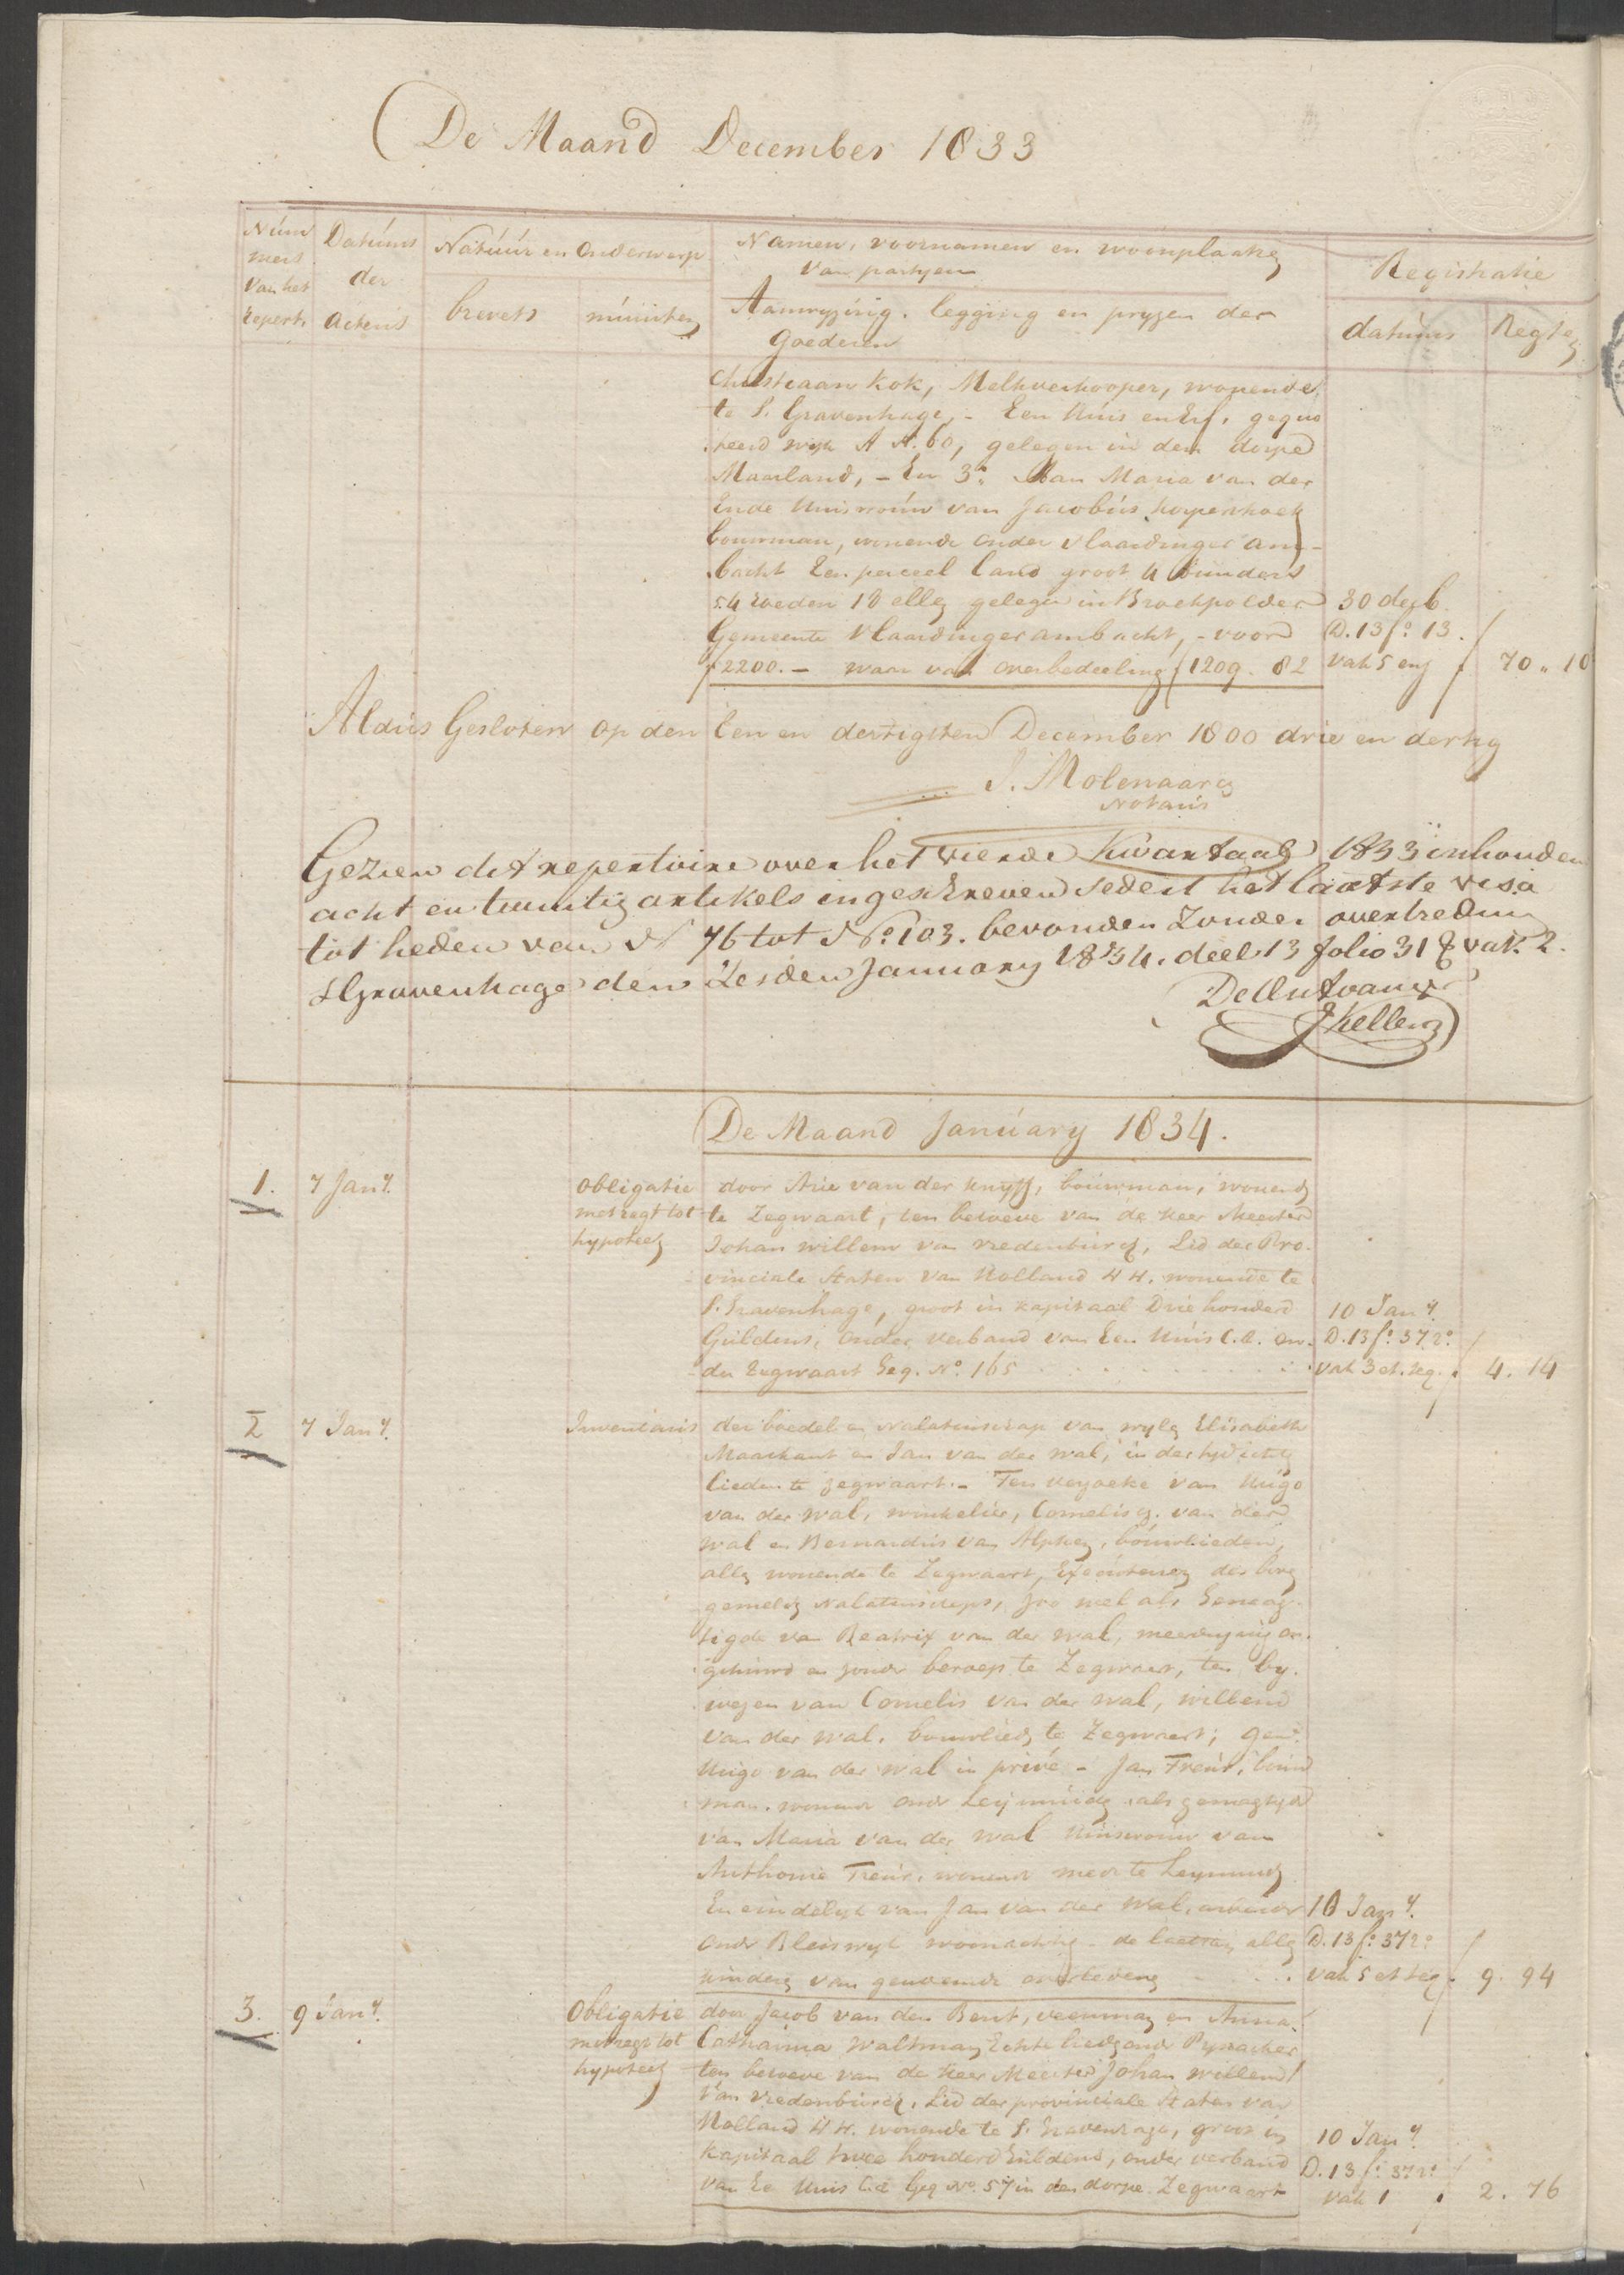 De Maand December 1833
Núm
mers
van het
repert.
Datúms
der
actens
Natúúr en Onderwerp
brevets
minúten
Namen, voornamen en woonplaatsen
van partyen
Aanwyzing, legging en pryzen der
Goederen
Registratie
datúms
Regten
Christiaan Kok, Melkverkooper, wonende
te S. Gravenhage, - Een Húis en Erf, gequo
teerd wyk A N. 60, gelegen in den dorpe
Maasland, - En 3o. Aan Maria van der
Ende Huisvroúw van Jacobús
bouwman, wonende onder Vlaardinger am-
bacht Een perceel land groot 4 bunders
54 roeden 18 ellen gelegen in Broekpolder
Gemeente Vlaardingerambacht, - voor
f 2200. - waar van overbedeeling f 1209. 82
30 decb.
D. 13 fo. 13.
vak 5 en
f 70 " 10
Aldús Gesloten op den Een en dertigsten December 1800 drie en dertig
J. Molenaar
Notaris
Gezien dit repertoire over het vierde Kwartaal 1833 inhouden
acht en twintig artikels ingeschreven sedert het laatste visa
tot heden van No 76 tot No. 103. bevonden zonder overtreding
s Gravenhage den Zesden January 1834. deel 13 folio 31 vak. 2.
De Ontvanger
De Maand Janúary 1834.
1.
7 Jany.
Obligatie
met regt tot
hypoteek
door Arie van der Knyff, boúwman, wonende
te Zegwaart, ten behoeve van de Heer Meester
Johan Willem van Vredenbúrch, Lid der Pro-
vinciale Staten van Holland &c. wonende te
S. Gravenhage, groot in kapitaal Drie honderd
Gúldens, onder verband van Een Húis c.a. on-
der Zegwaart Geq. No. 165
10 Jany.
D. 13 fo. 37 ro.
vak 3 et seq.
f 4. 14
2
7 Jany.
Inventaris
der boedel en Nalatenschap van wyle Elisabeth
Maarkant en Jan van der Wal, in der tyd echte
lieden te Zegwaart. - Ten verzoeke van Húgo
van der Wal, winkelier, Cornelis G. van der
Wal en Bernardús van Alphen, boúwlieden,
allen wonende te Zegwaart, Execúteuren der bove
gemelde Nalatenschap, zoo wel als Gemag-
tigde van Beatrix van der Wal, meerderjarig on-
gehúwd en zonder beroep te Zegwaart, ten by-
wezen van Cornelis van der Wal, Willem
van der Wal, bouwlieden te Zegwaart; gem.
Húgo van der Wal in privé - Jan Treúr, boúw
man, wonende onder Leijmúiden als gemagtigde
van Maria van der Wal Húisvroúw van
Anthonie Treúr, wonende mede te Leymuiden
En eindelyk van Jan van der Wal, arbeider
onder Bleiswyk woonachtig - de laatsten alle
kinderen van genoemde overledene
10 Jany.
D. 13 fo. 37 ro.
vak 5 et seq.
f 9. 94
3.
9 Jany.
Obligatie
met regt tot
hypoteek
door Jacob van den Bent, veenman en Anna
Catharina Waltman Echtelieden onder Pynacker
ten behoeve van de Heer Meester Johan Willem
van Vredenbúrch, Lid der provinciale Staten van
Holland &c. wonende te S. Gravenhage, groot in
Kapitaal twee honderd Gúldens, onder verband
van Een Húis c.a. Geq No. 57 in den dorpe Zegwaart
10 Jany.
D. 13 fo. 37 ro.
vak 1
f 2. 76